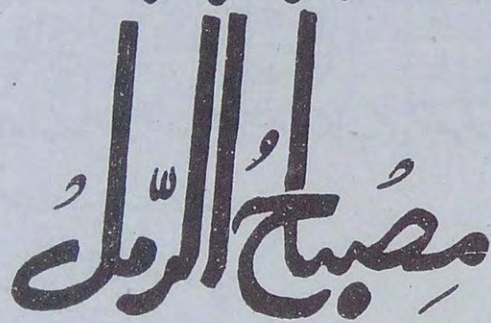 مِصُباحُ الرّملُ